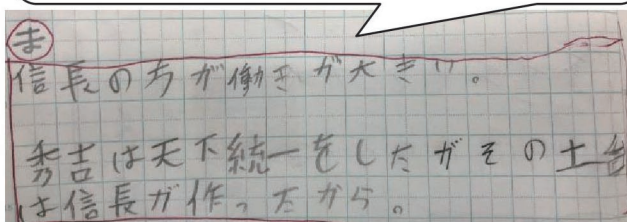 ま
信長の方が働きが大きい。
秀吉は天下統一をしたがその土台
は信長が作ったから。